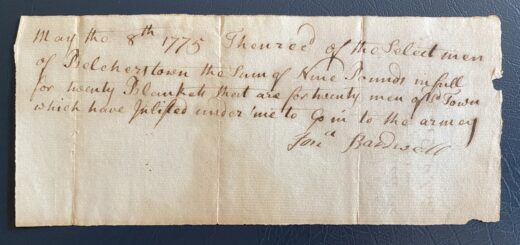 May the 8th 1775 Then rec'd of the Select men
of Belcherstown the Sum of Nine Pounds in full
for twenty Blankets that are for twenty men of sd Town
which have Inlisted under me to Go in to the armey
Jona Bardwell